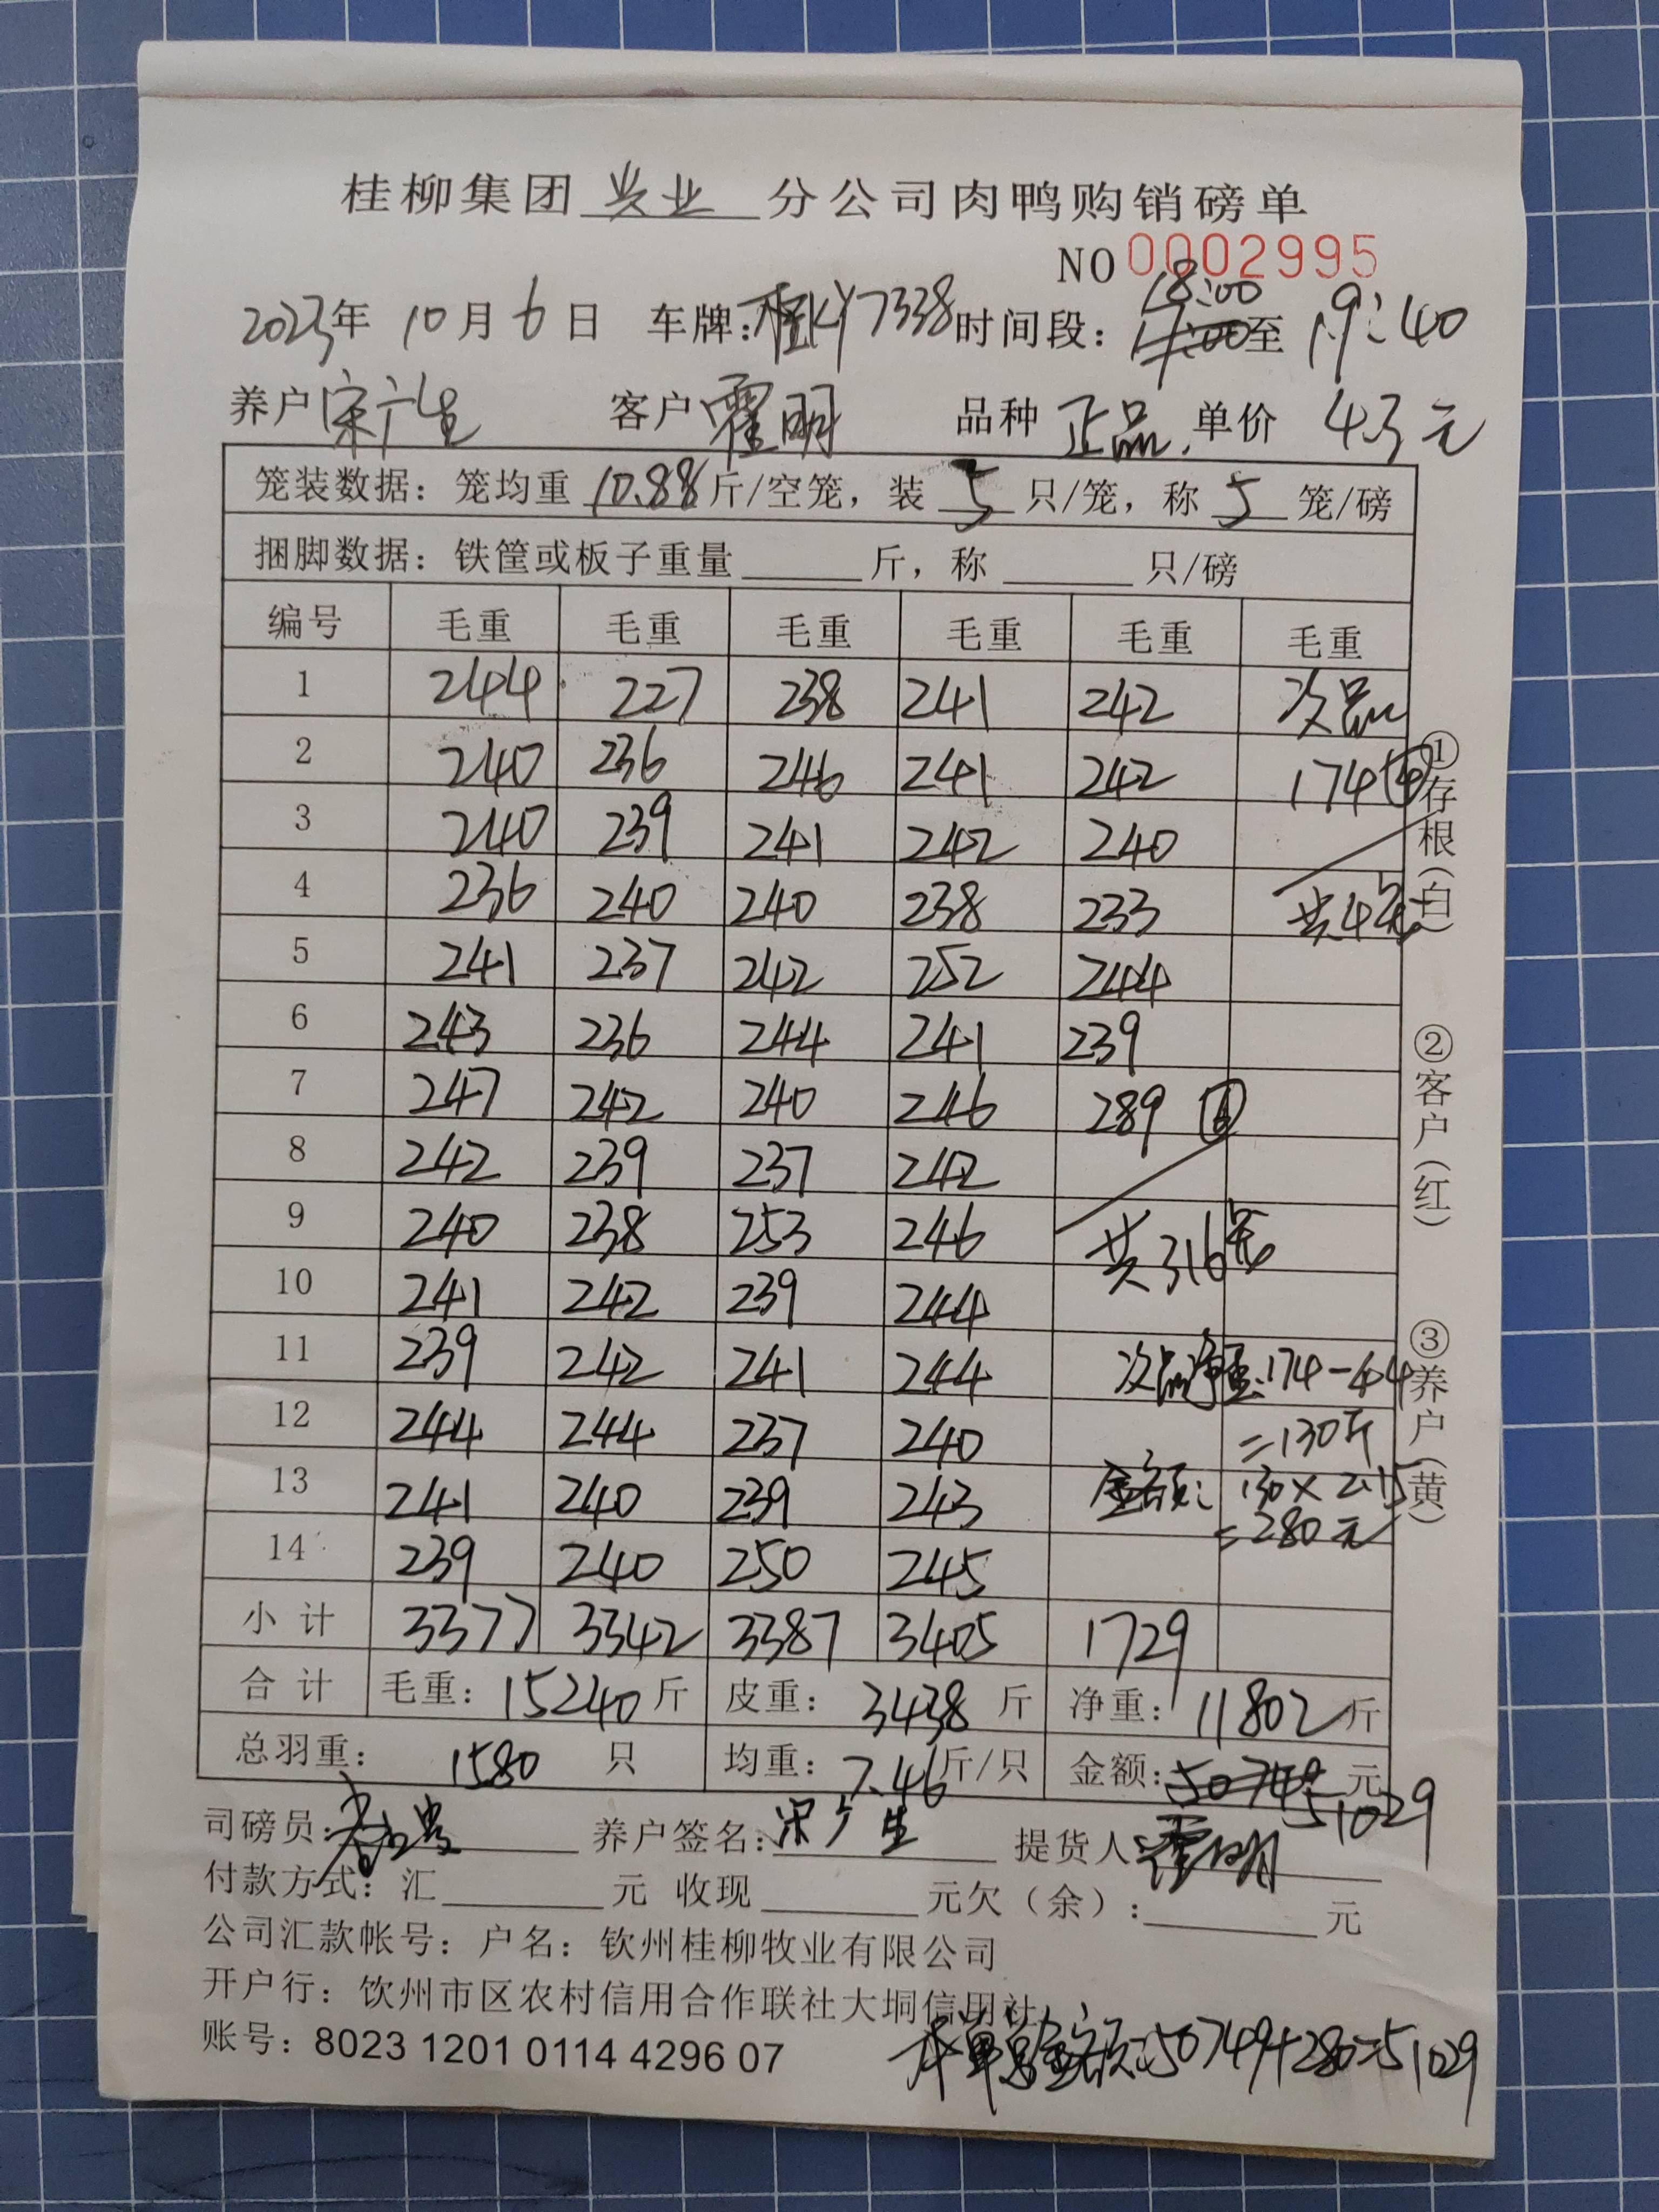 桂柳集团 兴业 分公司肉鸭购销磅单
NO 0002995
2023年 10月 6日 车牌:桂KY7338 时间段: 18:00 至 19:40
养户 宋广生 客户 霍明 品种 正品. 单价 4.3元
笼装数据: 笼均重 10.88 斤/空笼, 装 5 只/笼, 称 5 笼/磅
捆脚数据: 铁筐或板子重量 斤, 称 只/磅
编号 毛重 毛重 毛重 毛重 毛重 毛重
1 244 227 238 241 242 次品
2 240 236 246 241 242 174 ④
3 240 239 241 242 240
4 236 240 240 238 233 共4笼
5 241 237 242 252 244
6 243 236 244 241 239
7 247 242 240 246 289 ⑥
8 242 239 237 242
9 240 238 253 246 共316笼
10 241 242 239 244
11 239 242 241 244 次品净重:174-44
12 244 244 237 240 =130斤
13 241 240 239 243 金额: 130×2.15
=280元
14 239 240 250 245
小计 3377 3342 3387 3405 1729
合计 毛重: 15240 斤 皮重: 3438 斤 净重: 11802 斤
总羽重: 1580 只 均重: 7.46 斤/只 金额: 50749 元
51029
司磅员: 养户签名: 宋广生 提货人: 霍明
付款方式: 汇 元 收现 元欠(余): 元
公司汇款帐号: 户名: 钦州桂柳牧业有限公司
开户行: 钦州市区农村信用合作联社大垌信用社
账号: 8023 1201 0114 4296 07
本单总金额:50749+280=51029
①存根(白)
②客户(红)
③养户(黄)